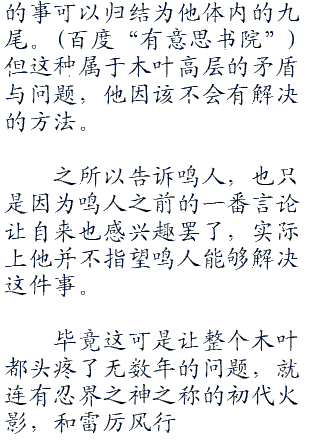 的事可以归结为他体内的九
尾。(百度“有意思书院”)
但这种属于木叶高层的矛盾
与问题，他因该不会有解决
的方法。
之所以告诉鸣人，也只
是因为鸣人之前的一番言论
让自来也感兴趣罢了，实际
上他并不指望鸣人能够解决
这件事。
毕竟这可是让整个木叶
都头疼了无数年的问题，就
连有忍界之神之称的初代火
影，和雷厉风行